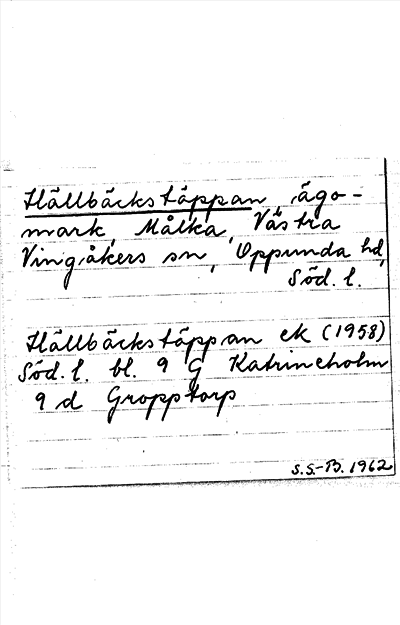 Hällbäckstäppan, ägo-
mark, Målka, Västra
Vingåkers sn, Oppunda hd,
Söd. l.
Hällbäckstäppan ek (1958)
Söd. l. bl. 9 G Katrineholm
9 d Gropptorp
S.S.-B. 1962